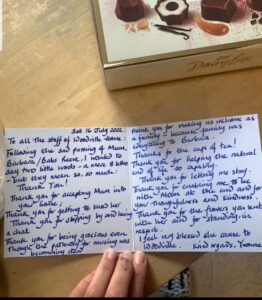 Sat 16 July 2022.
To all the staff of Woodville House:
Following the sad passing of Mum,
Barbara / Babs Reeve, I wanted to
say two little words - a mere 8 letters
but they mean so, so much:
Thank You!
Thank you for accepting Mum into
your home;
Thank you for getting to know her
Thank you for stopping by and having
a chat
Thank you for being gracious even
though the pathway to nursing was
becoming clear
thank you for making us welcome as
a family - because family was
everything to Barbara
Thanks for the cups of tea!
Thank you for helping the natural
end of life so capably.
Thank you for letting me stay.
Thank you for enabling me to be
with Mum at the end and for
your thoughtfulness and kindness.
Thank you for the flowers you sent
with her and for standing in
respect.
I feel very blessed she came to
Woodville. Kind regards, Yvonne